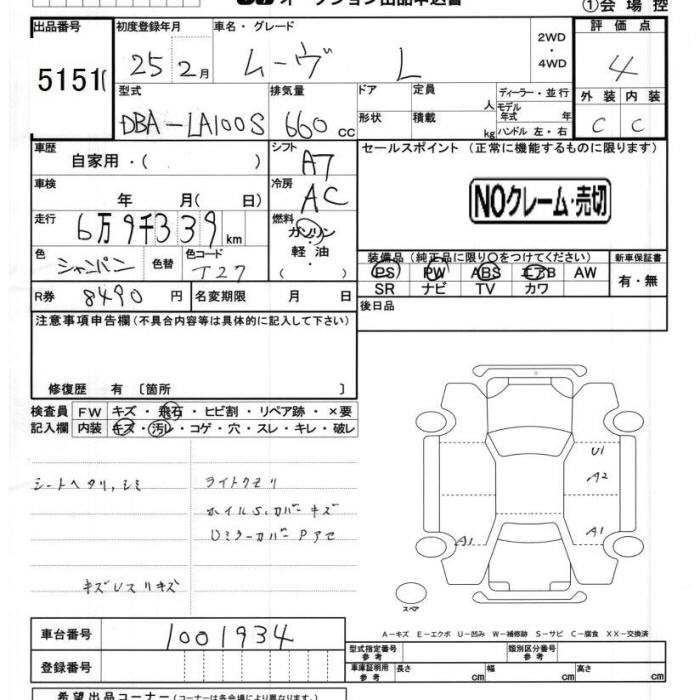 オークション出品申込書
①会場控
出品番号 初度登録年月 車名・グレード 2WD・4WD 評価点
5151 25 2月 ムーヴ L 4
型式 排気量 ドア 定員 人 ディーラー・並行 外装 内装
DBA-LA100S 660 cc 形状 積載 kg モデル年式 年 ハンドル 左・右 C C
車歴 自家用・( ) シフト AT セールスポイント (正常に機能するものに限ります)
車検 年 月( 日) 冷房 AC
NOクレーム・売切
走行 6万9千339km 燃料 ガソリン・軽油・( )
色 シャンパン 色替 色コード T27
装備品(純正品に限り○をつけてください) 新車保証書
PS PW ABS エアB AW 有・無
SR ナビ TV カワ
R券 8490円 名変期限 月 日 後日品
注意事項申告欄(不具合内容等は具体的に記入して下さい)
修復歴 有〔箇所 〕
検査員 FW キズ・飛石・ヒビ割・リペア跡・×要
記入欄 内装 キズ・汚レ・コゲ・穴・スレ・キレ・破レ
シートヘタリ,シミ
ライトクモリ
ホイルS,カバーキズ
Dミラーカバー Pアセ
キズUスリキズ
U1
A2
A1 A1
スペア
A-キズ E-エクボ U-凹み W-補修跡 S-サビ C-腐食 XX-交換済
車台番号 1001934
型式指定番号 参考 類別区分番号 参考
登録番号 車庫証明用 参考 長さ cm 幅 cm 高さ cm
希望出品コーナー(コーナーは各会場により異なります。)